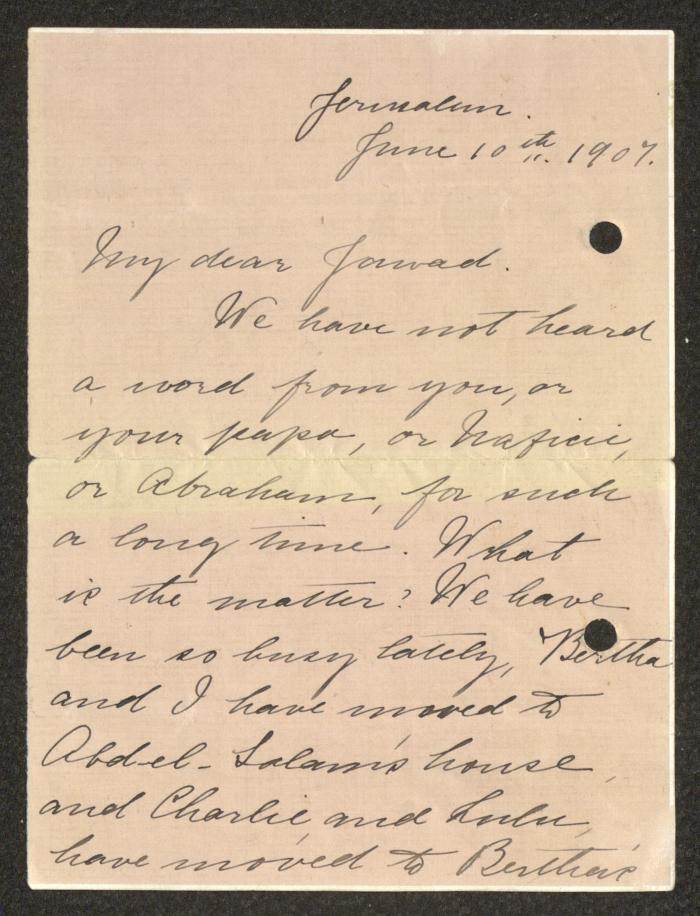 Jerusalem.
June 10th. 1907.
My dear Jowad.
We have not heard
a word from you, or
your papa, or Naficie,
or Abraham, for such
a long time. What
is the matter? We have
been so busy lately, Bertha
and I have moved to
Abd-el-Salam's house,
and Charlie and Lulu,
have moved to Bertha's